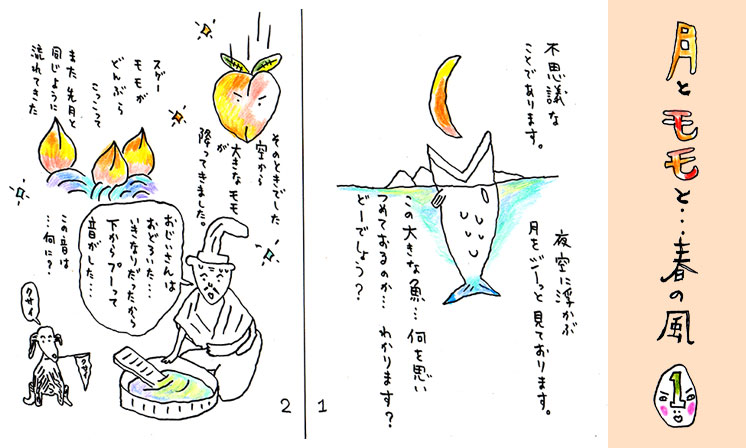 月とモモと…春の風
1
不思議な
ことであります。
夜空に浮かぶ
月をジーッと見ております。
この大きな魚…何を思い
つめておるのか…わかります？
どーでしょう？
1
そのときでした
空から
大きなモモ
が
降ってきました。
スゲー
モモが
どんぶら
こっこって
また先月と
同じように
流れてきた
おじいさんは
おどろいた…
いきなりだったから
下からプーって
音がした…
この音は
…何に？
クサイ
クサイ
2